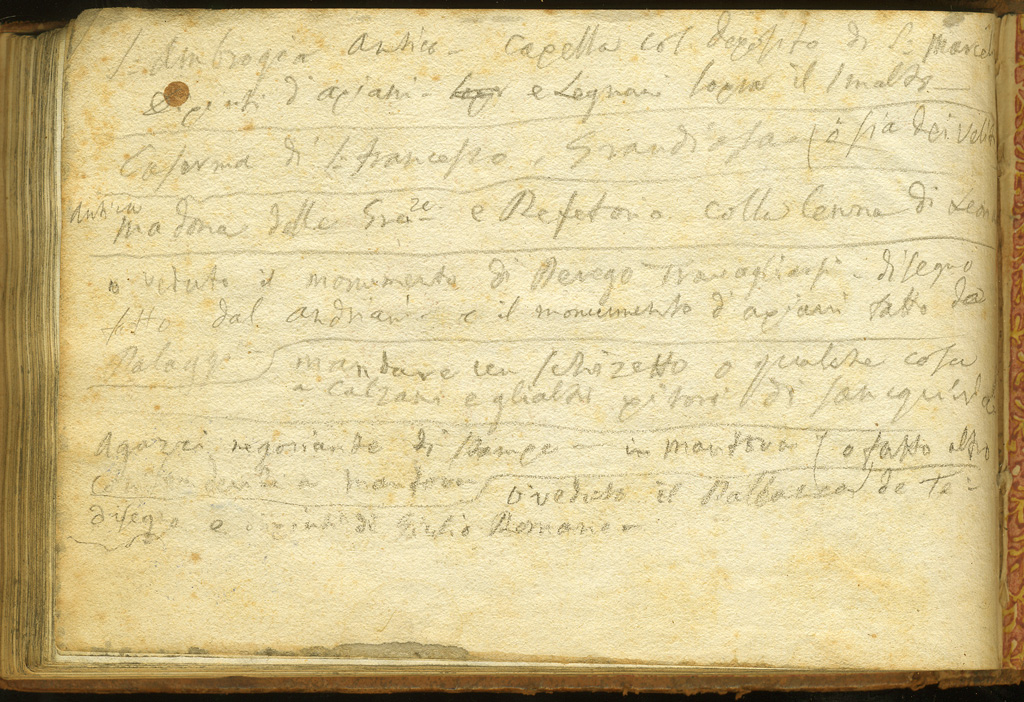 S. Ambrogio antico - capella col deposito di S. Marcel
dipinti d'apiani - e Legnani sopra il Smalto
Caserma di S. francesco, Grandiosa - (ò sia dei veliti
Antica
Madona delle Gra ze e Refetorio colla Cenna di Leon
o veduto il monumento di disegno
fatto dal andriani e il monumento d'apiani fatto da
Palaggi mandare un schizzetto o qualche cosa
a Calzani e glialtri pitori di
Agazzi negoziante di stampe - in mandova (o fatto altro
a mandova o veduto il Pallazzo de Te -
disegni e dipinti di Giulio Romano -